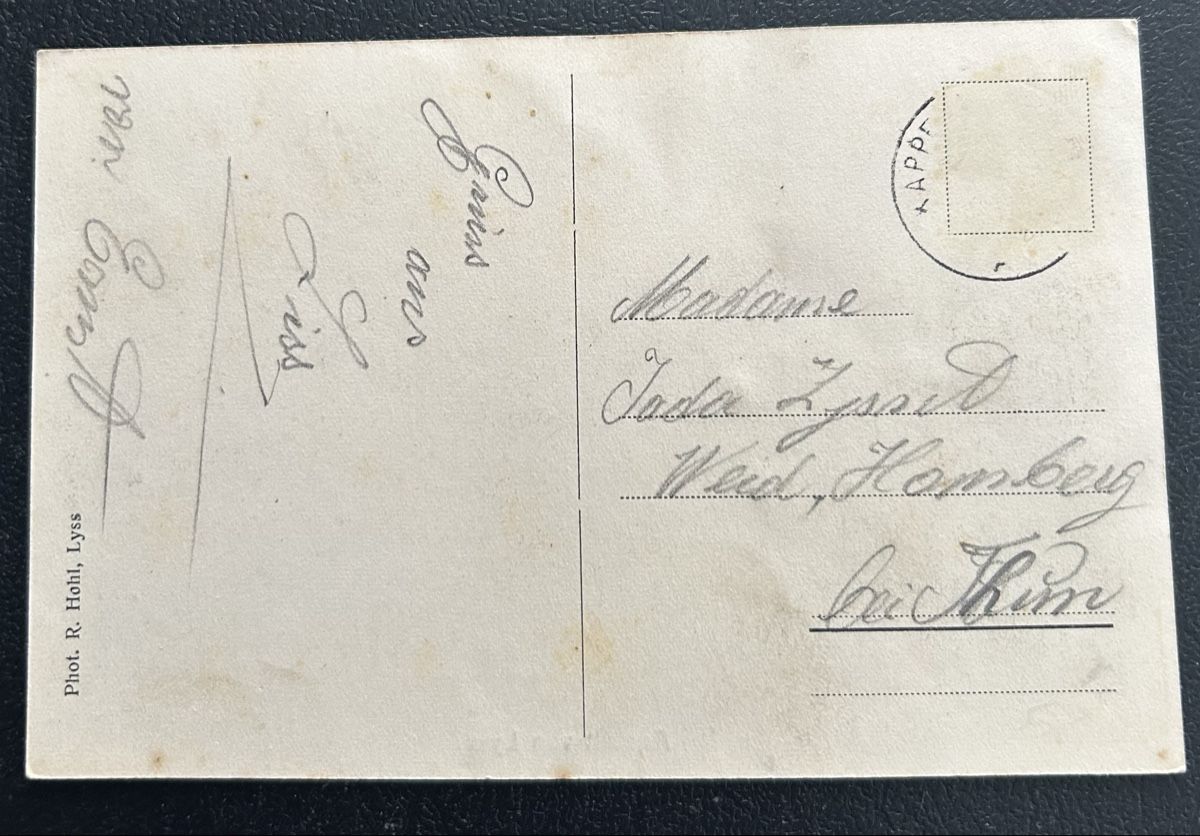 Gruss
aus
Liss
Phot. R. Hohl, Lyss
KAPPE
Madame
Zysset
Weid, Homberg
bei Thun